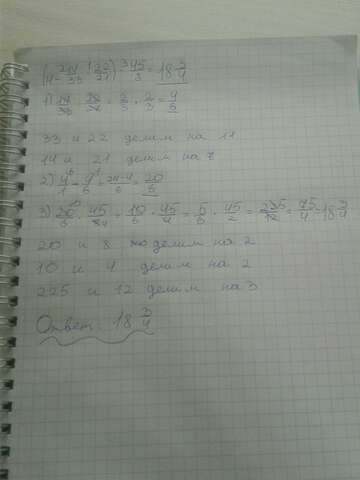 (4 - 14/33 · 1 22/21) · 3 45/8 = 18 3/4
1) 14/33 · 22/21 = 2/3 · 2/3 = 4/9
33 и 22 делим на 11
14 и 21 делим на 7
2) 4/1 - 4/6 = 24-4/6 = 20/6
3) 20/6 · 45/8 = 10/6 · 45/4 = 5/6 · 45/2 = 225/12 = 75/4 = 18 3/4
20 и 8 делим на 2
10 и 4 делим на 2
225 и 12 делим на 3
Ответ: 18 3/4